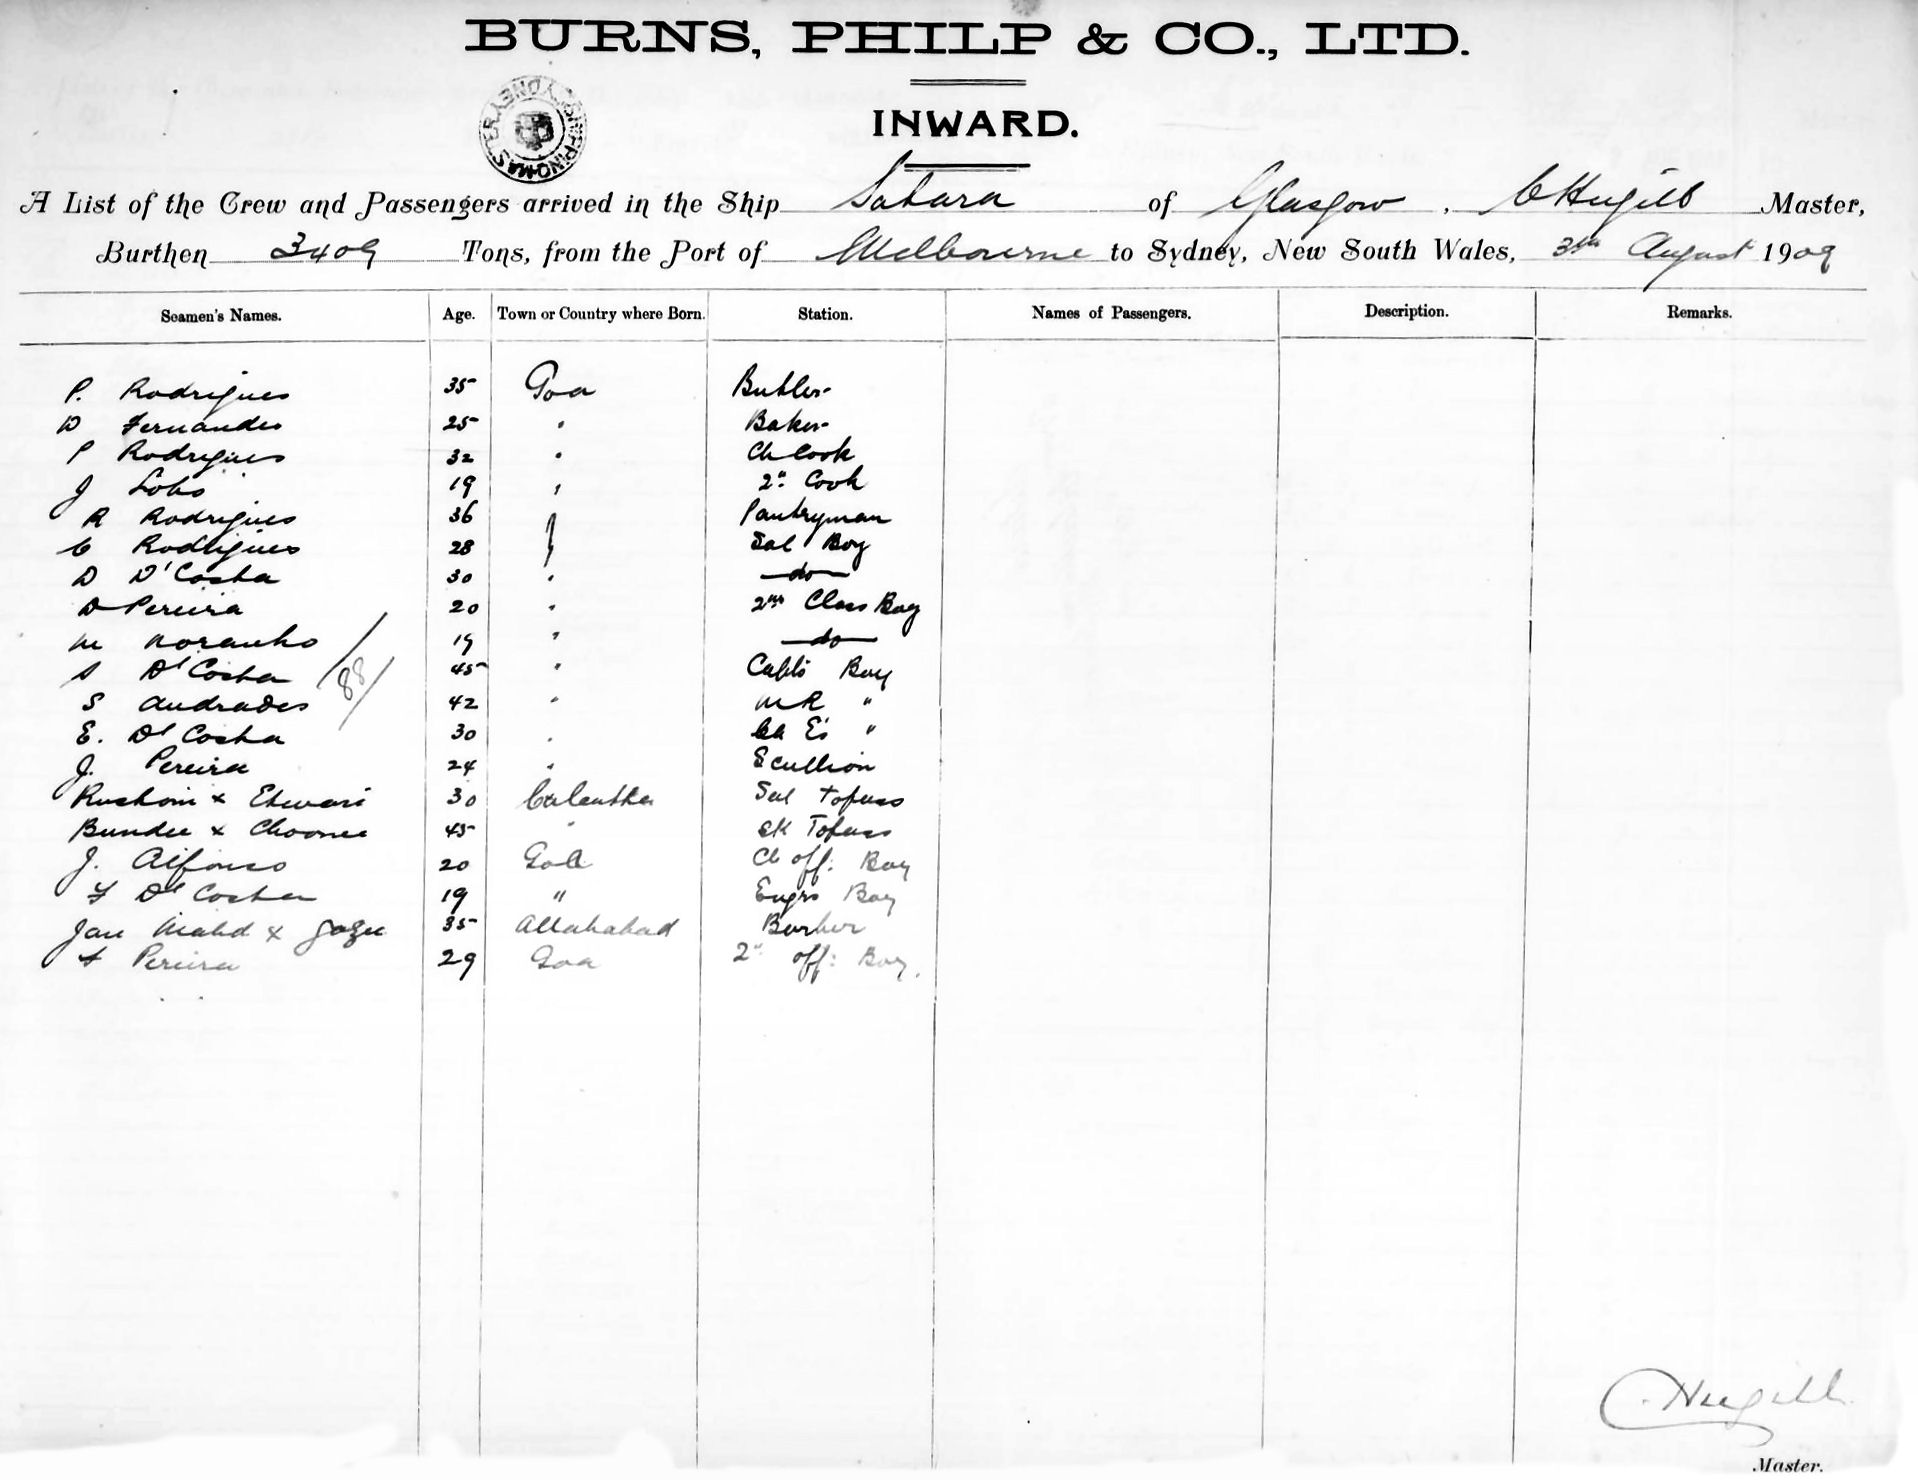 BURNS, PHILP & CO., LTD.
SHIPPING MASTER SYDNEY
INWARD.
A List of the Crew and Passengers arrived in the Ship Sahara of Glasgow, C Hugill Master,
Burthen 3409 Tons, from the Port of Melbourne to Sydney, New South Wales, August 1909
Seamen's Names. Age. Town or Country where Born. Station. Names of Passengers. Description. Remarks.
P. Rodrigues 35 Goa Butler
D Fernandes 25 " Baker
P Rodrigues 32 " Ch Cook
J Lobo 19 " 2" Cook
R Rodrigues 36 " Pantryman
C Rodrigues 28 " Sal Boy
D D'Costa 30 " do
D Pereira 20 " 2nd Class Boy
M Noranho 19 " do
S D'Costa 45 " Capt's Boy
88
S Andrades 42 " M R "
E. D'Costa 30 " Ch E's "
J. Pereira 24 " Scullion
Rustom x Etwari 30 Calcutta Sal Topass
Bundee x Choonee 45 " Topass
J. Alfonso 20 Goa Ch off: Boy
F D'Costa 19 " Engrs Boy
Jan Mahd x 35 Allahabad Barber
F Pereira 29 Goa 2" off: Boy.
C. Hugill
Master.